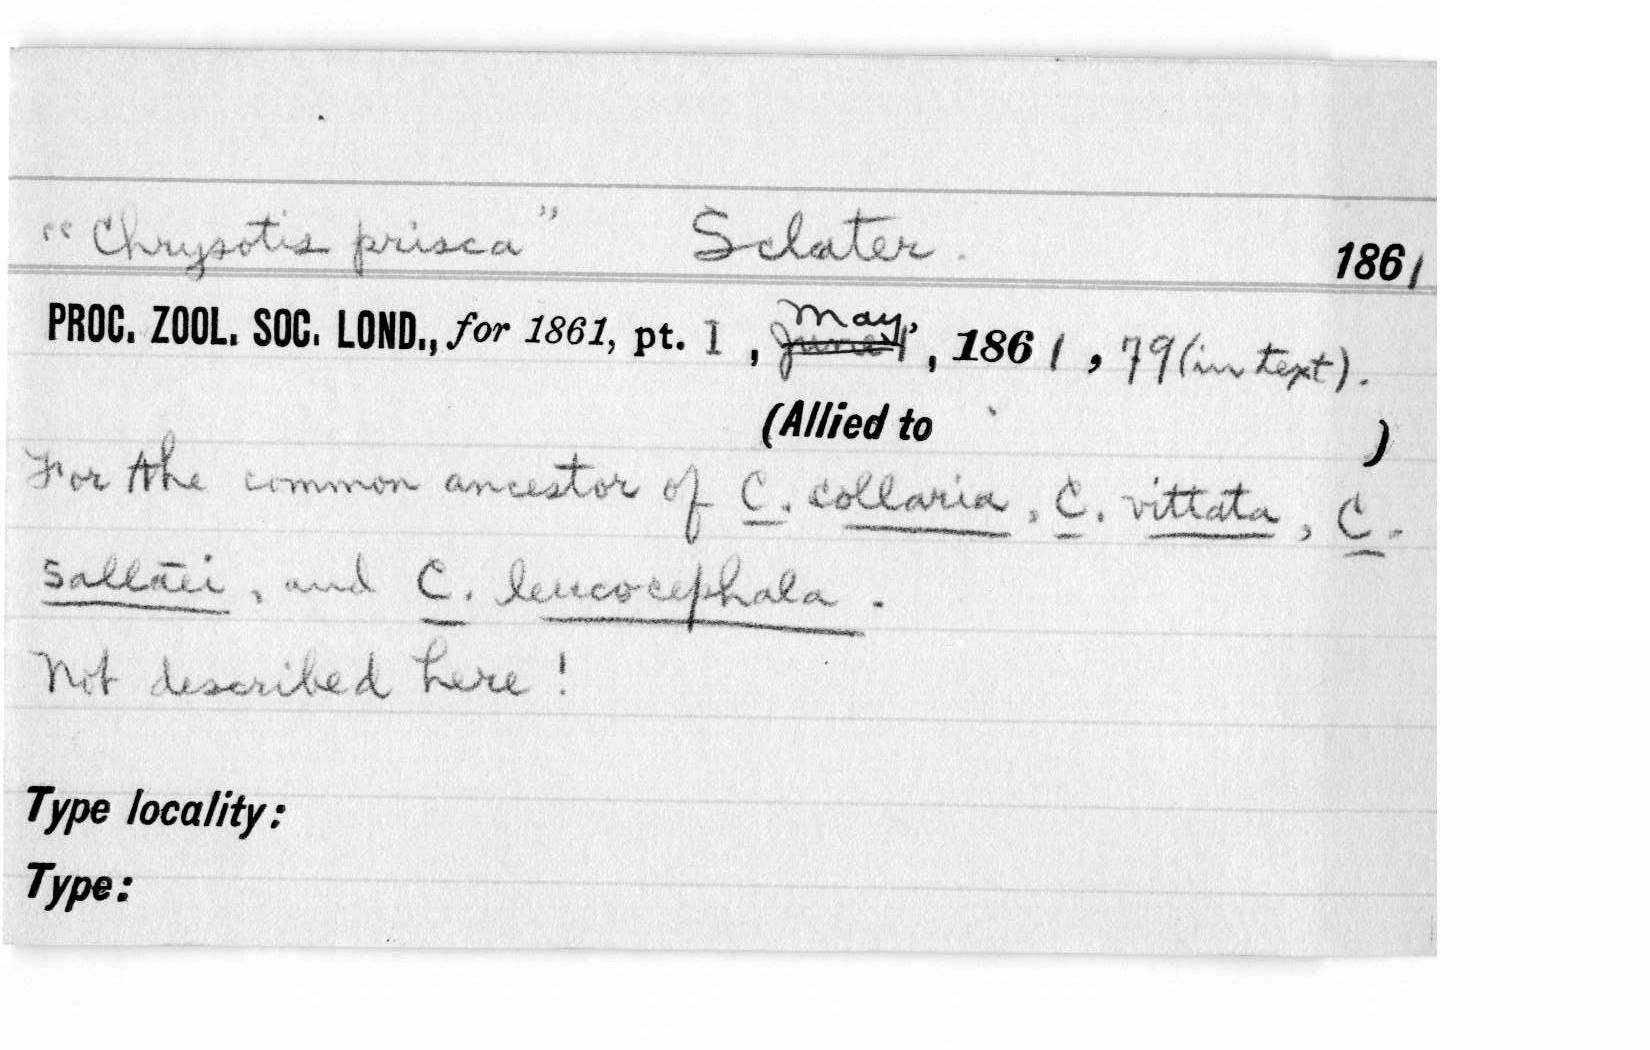 "Chrysotis prisca" Sclater. 1861
PROC. ZOOL. SOC. LOND., for 1861, pt. I, May, June, 1861, 79 (in text).
(Allied to )
For the common ancestor of C. collaria, C. vittata, C.
sallæi, and C. leucocephala.
Not described here!
Type locality:
Type: